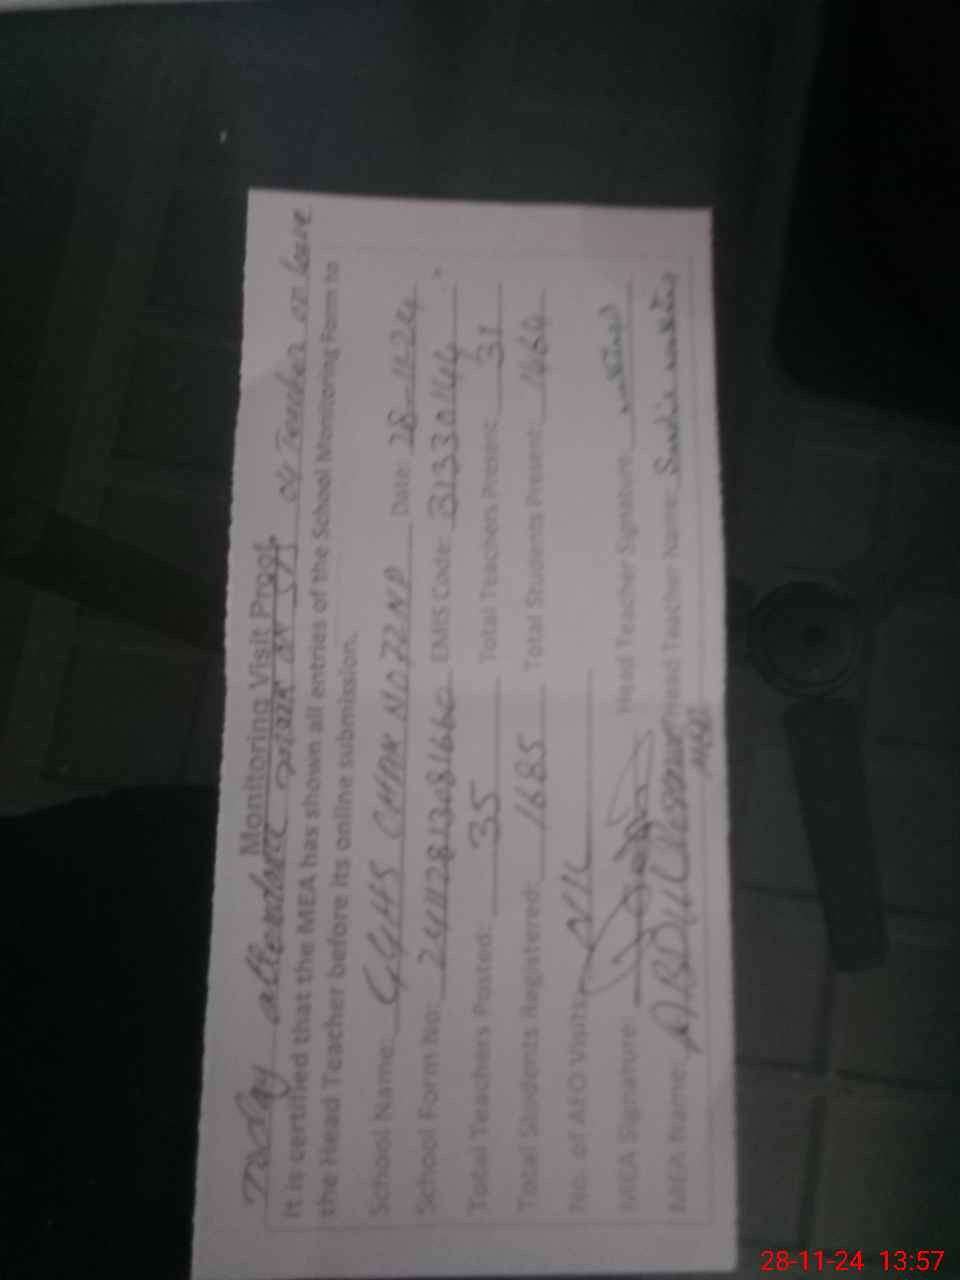 Monitoring Visit Proof
Today attendance 04 Teacher on leave
It is certified that the MEA has shown all entries of the School Monitoring Form to
the Head Teacher before its online submission.
School Name: GGHS CHAK NO 72 NP Date: 28-11-24
School Form No: EMIS Code: 31330144
Total Teachers Posted: 35 Total Teachers Present: 31
Total Students Registered: 1685 Total Students Present: 1464
No. of AEO Visits: NIL
MEA Signature: Head Teacher Signature:
MEA Name: ABDUL Head Teacher Name:
MEA
28-11-24 13:57